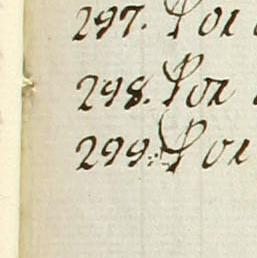 297. Por
298. Por
299. Por